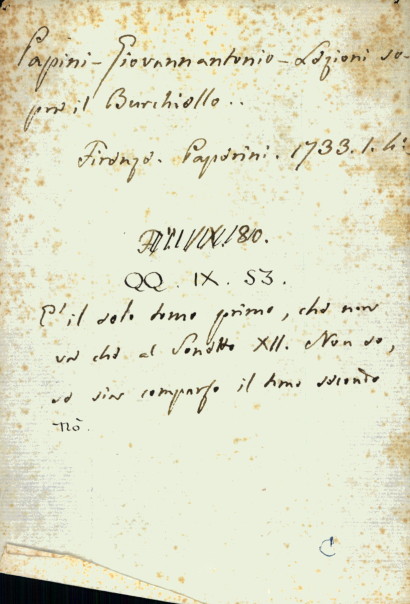 Papini - Giovannantonio - Lezioni so-
pra il Burchiello..
Firenze. Paperini. 1733. 1. 4:
QQ. IX. 53.
E' il solo tomo primo, che non
va che al Sonetto XII. Non so,
se sia comparso il tomo secondo
nò.
C